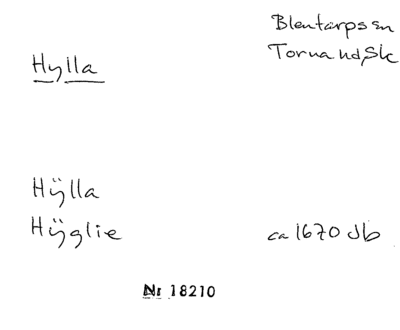 Blentarps sn
Torna hd, Sk
Hylla
Hÿlla
Hÿglie ca 1670 Jb
Nr 18210